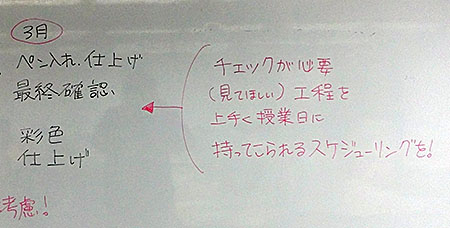 3月
ペン入れ.仕上げ
最終確認
彩色
仕上げ
チェックが必要
(見てほしい)工程を
上手く授業日に
持ってこられるスケジューリングを!
考慮!